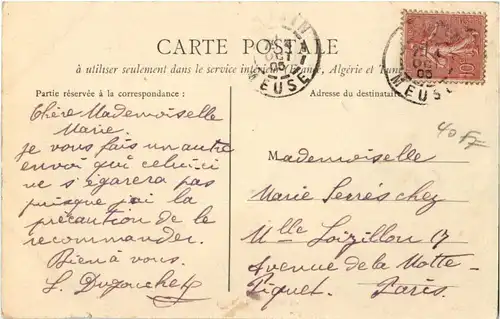 CARTE POSTALE
à utiliser seulement dans le service intérieur (France, Algérie et Tunisie)
Partie réservée à la correspondance :
Chère Mademoiselle
Marie.
Je vous fais un autre
envoi qui celui-ci
ne s'égarera pas
puisque j'ai la
précaution de le
recommander.
Bien à vous.
Adresse du destinataire
Mademoiselle
Marie Serrés chez
Mlle Loizillon 17
Avenue de la Motte-
Piquet. Paris.
MEUSE
MEUSE
10
40 FF